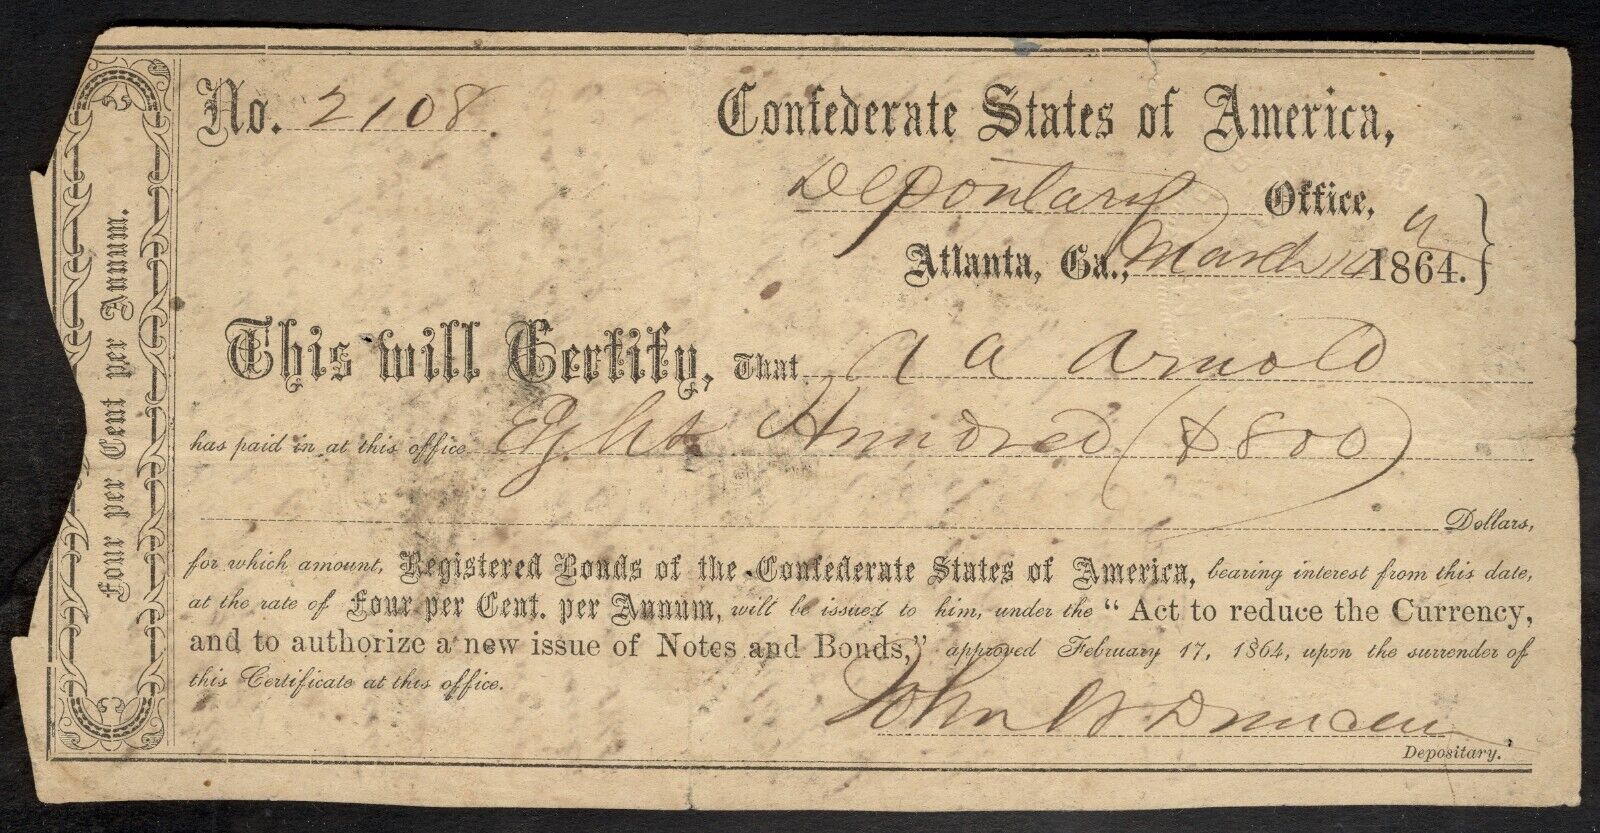 Four per Cent per Annum.
No. 2108.
Confederate States of America,
Depositary Office,
Atlanta, Ga., March 1864.
This will Certify, That A A Arnold
has paid in at this office Eight Hundred ($800)
Dollars,
for which amount, Registered Bonds of the Confederate States of America, bearing interest from this date,
at the rate of Four per Cent. per Annum, will be issued to him, under the "Act to reduce the Currency,
and to authorize a new issue of Notes and Bonds," approved February 17, 1864, upon the surrender of
this Certificate at this office.
John W Duncan
Depositary.